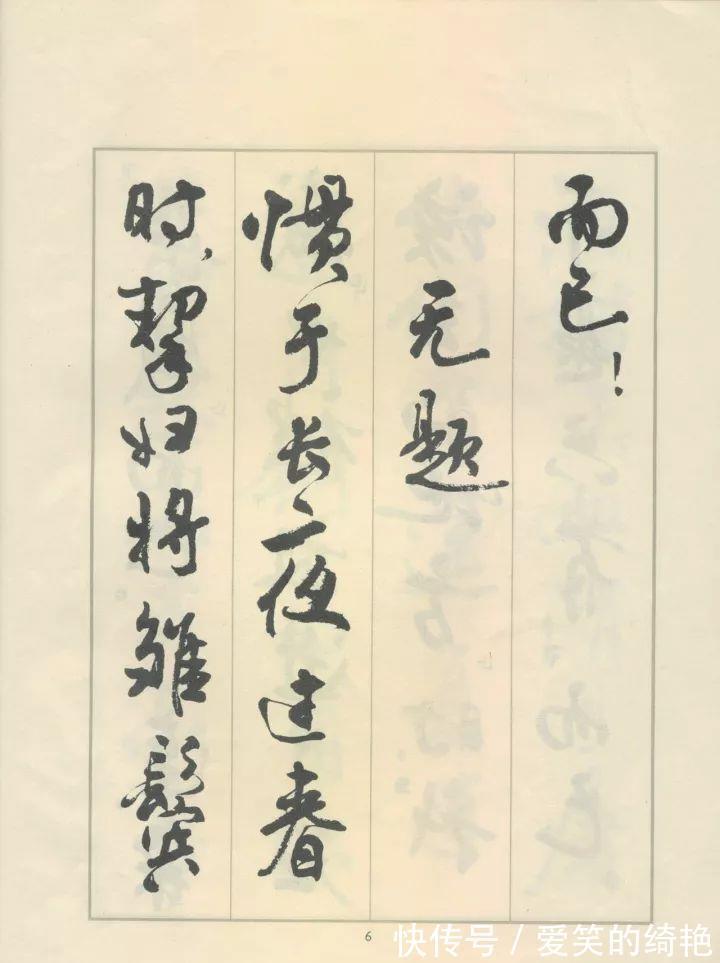 而已！
无题
惯于长夜过春
时，挈妇将雏鬓
6
快传号 / 爱笑的绮艳